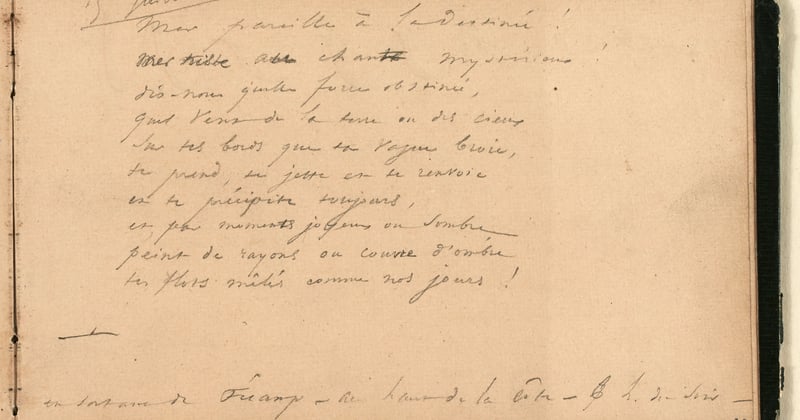 Mer pareille à la destinée !
Mer triste au chant mystérieux !
dis-nous quelle force obstinée,
quel vent de la terre ou des cieux
sur tes bords que ta vague broie,
te prend, te jette et te renvoie
et te précipite toujours,
et, par moments joyeux ou sombre
peint de rayons ou couvre d'ombre
tes flots mêlés comme nos jours !
en sortant de Fécamp – au haut de la côte – h. du soir –